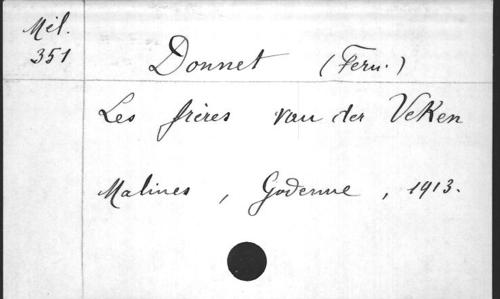 Mél.
351
Donnet (Fern.)
Les frères van der Veken
Malines, Godenne, 1913.